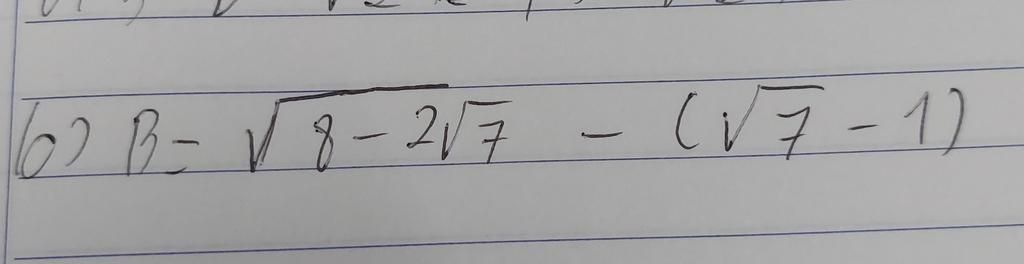 b) B = √(8 - 2√7) - (√7 - 1)